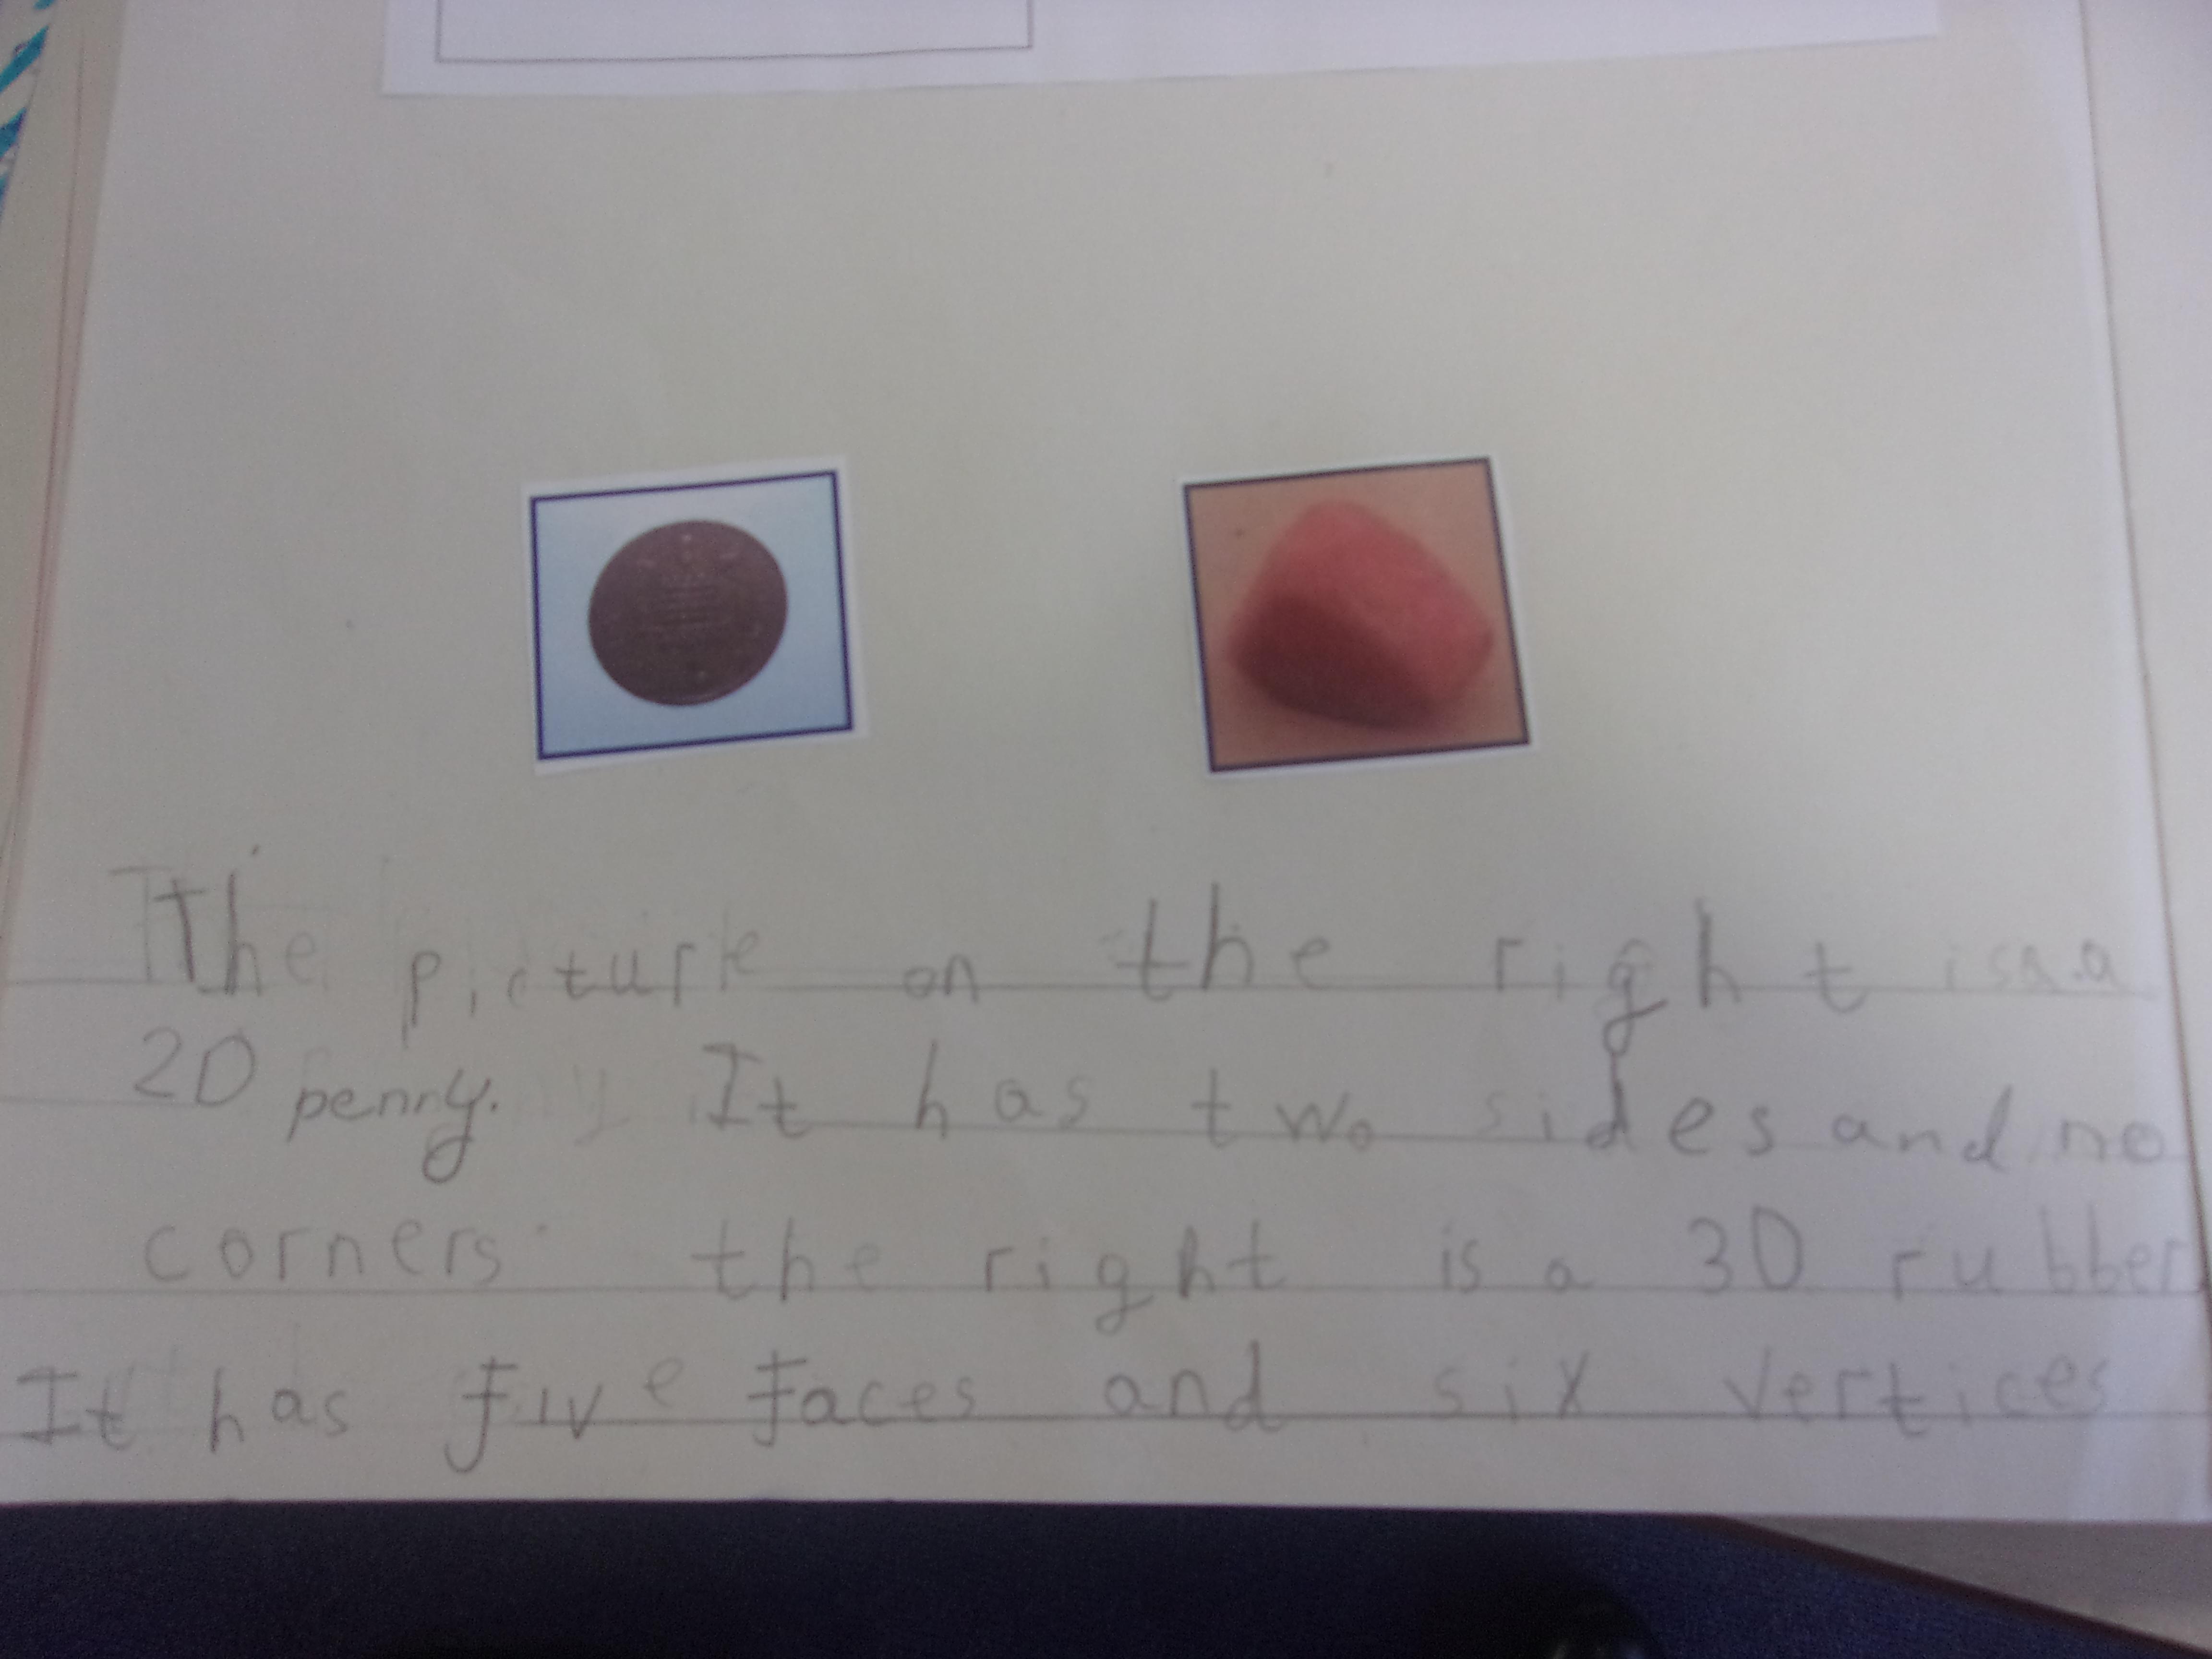 The picture on the right is a
2D penny. It has two sides and no
corners. the right is a 3D rubber
It has five faces and six vertices